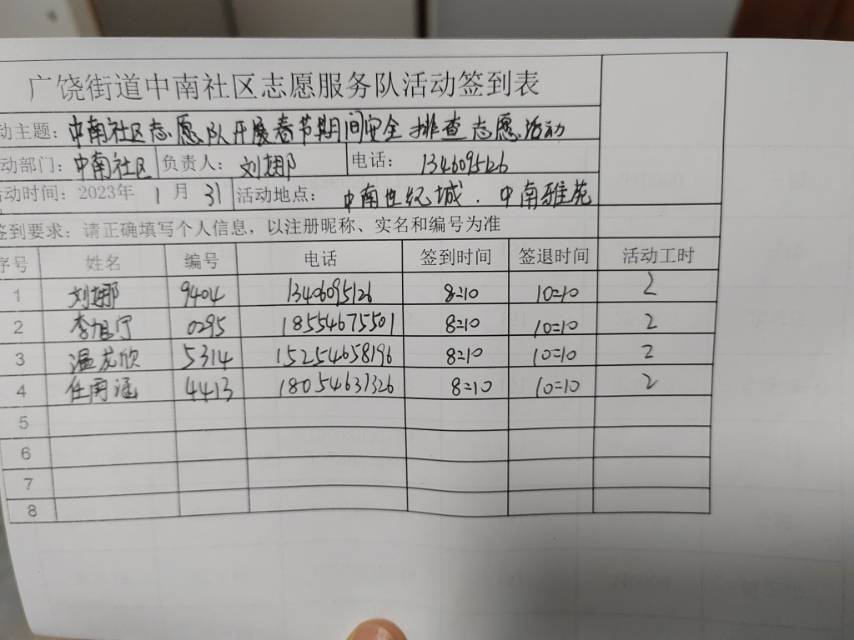 广饶街道中南社区志愿服务队活动签到表
动主题：中南社区志愿队开展春节期间安全排查志愿活动
动部门：中南社区 负责人：刘娜 电话：1346095126
活动时间：2023年 1 月 31 活动地点：中南世纪城．中南雅苑
签到要求：请正确填写个人信息，以注册昵称、实名和编号为准
序号 姓名 编号 电话 签到时间 签退时间 活动工时
1 刘娜 9404 1346095126 8=10 10=10 2
2 李旭宁 0295 18554675501 8=10 10=10 2
3 温龙欣 5314 15254658196 8=10 10=10 2
4 任雨涵 4413 18054631326 8=10 10=10 2
5
6
7
8